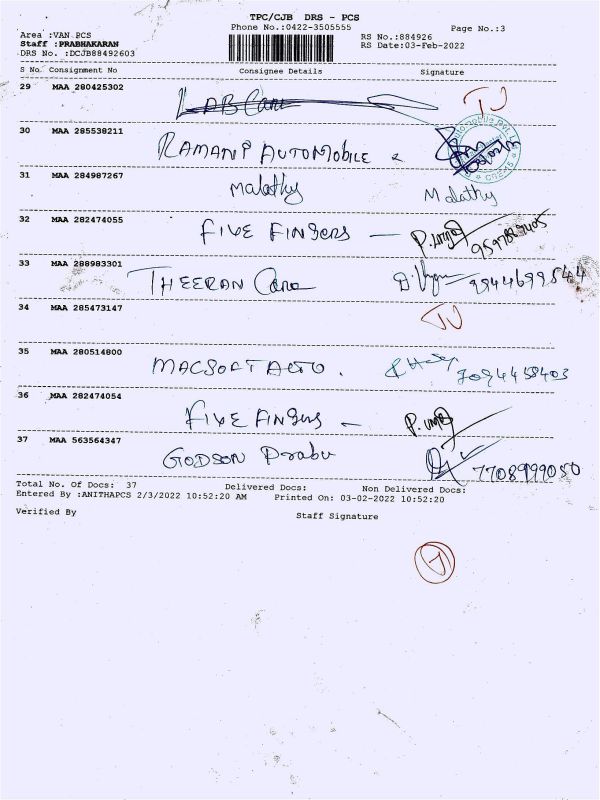 TPC/CJB DRS - PCS
Phone No.:0422-3505555
Page No.:3
Area :VAN PCS
RS No.:884926
Staff :PRABHAKARAN
RS Date:03-Feb-2022
DRS No. :DCJB88492603
S No. Consignment No Consignee Details Signature
29 MAA 280425302 LAB Care TJ
30 MAA 285538211 RAMANI AUTOMOBILE
31 MAA 284987267 Malathy Malathy
32 MAA 282474055 FIVE FINGERS —
33 MAA 288983301 THEERAN Care 9944699544
34 MAA 285473147 TJ
35 MAA 280514800 MACSOFT AUTO. 7094458403
36 MAA 282474054 FIVE FINGERS —
37 MAA 563564347 GODSON Prabu 7708999050
Total No. Of Docs: 37 Delivered Docs: Non Delivered Docs:
Entered By :ANITHAPCS 2/3/2022 10:52:20 AM Printed On: 03-02-2022 10:52:20
Verified By Staff Signature